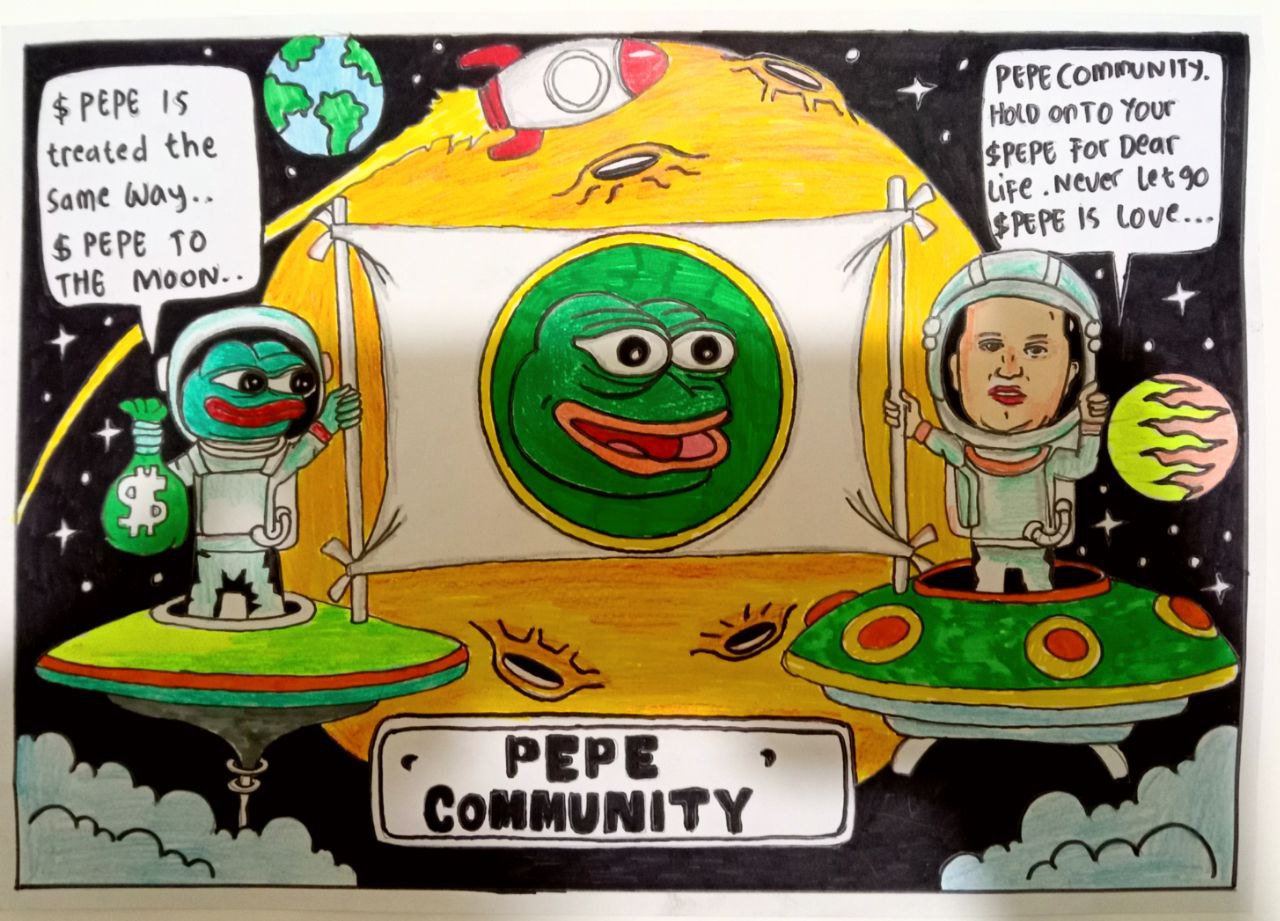 $ PEPE IS
treated the
same way..
$ PEPE TO
THE MOON..
PEPE COMMUNITY.
HOLD ONTO YOUR
$PEPE FOR DEAR
LIFE. Never let go
$PEPE IS LOVE...
$
PEPE
COMMUNITY